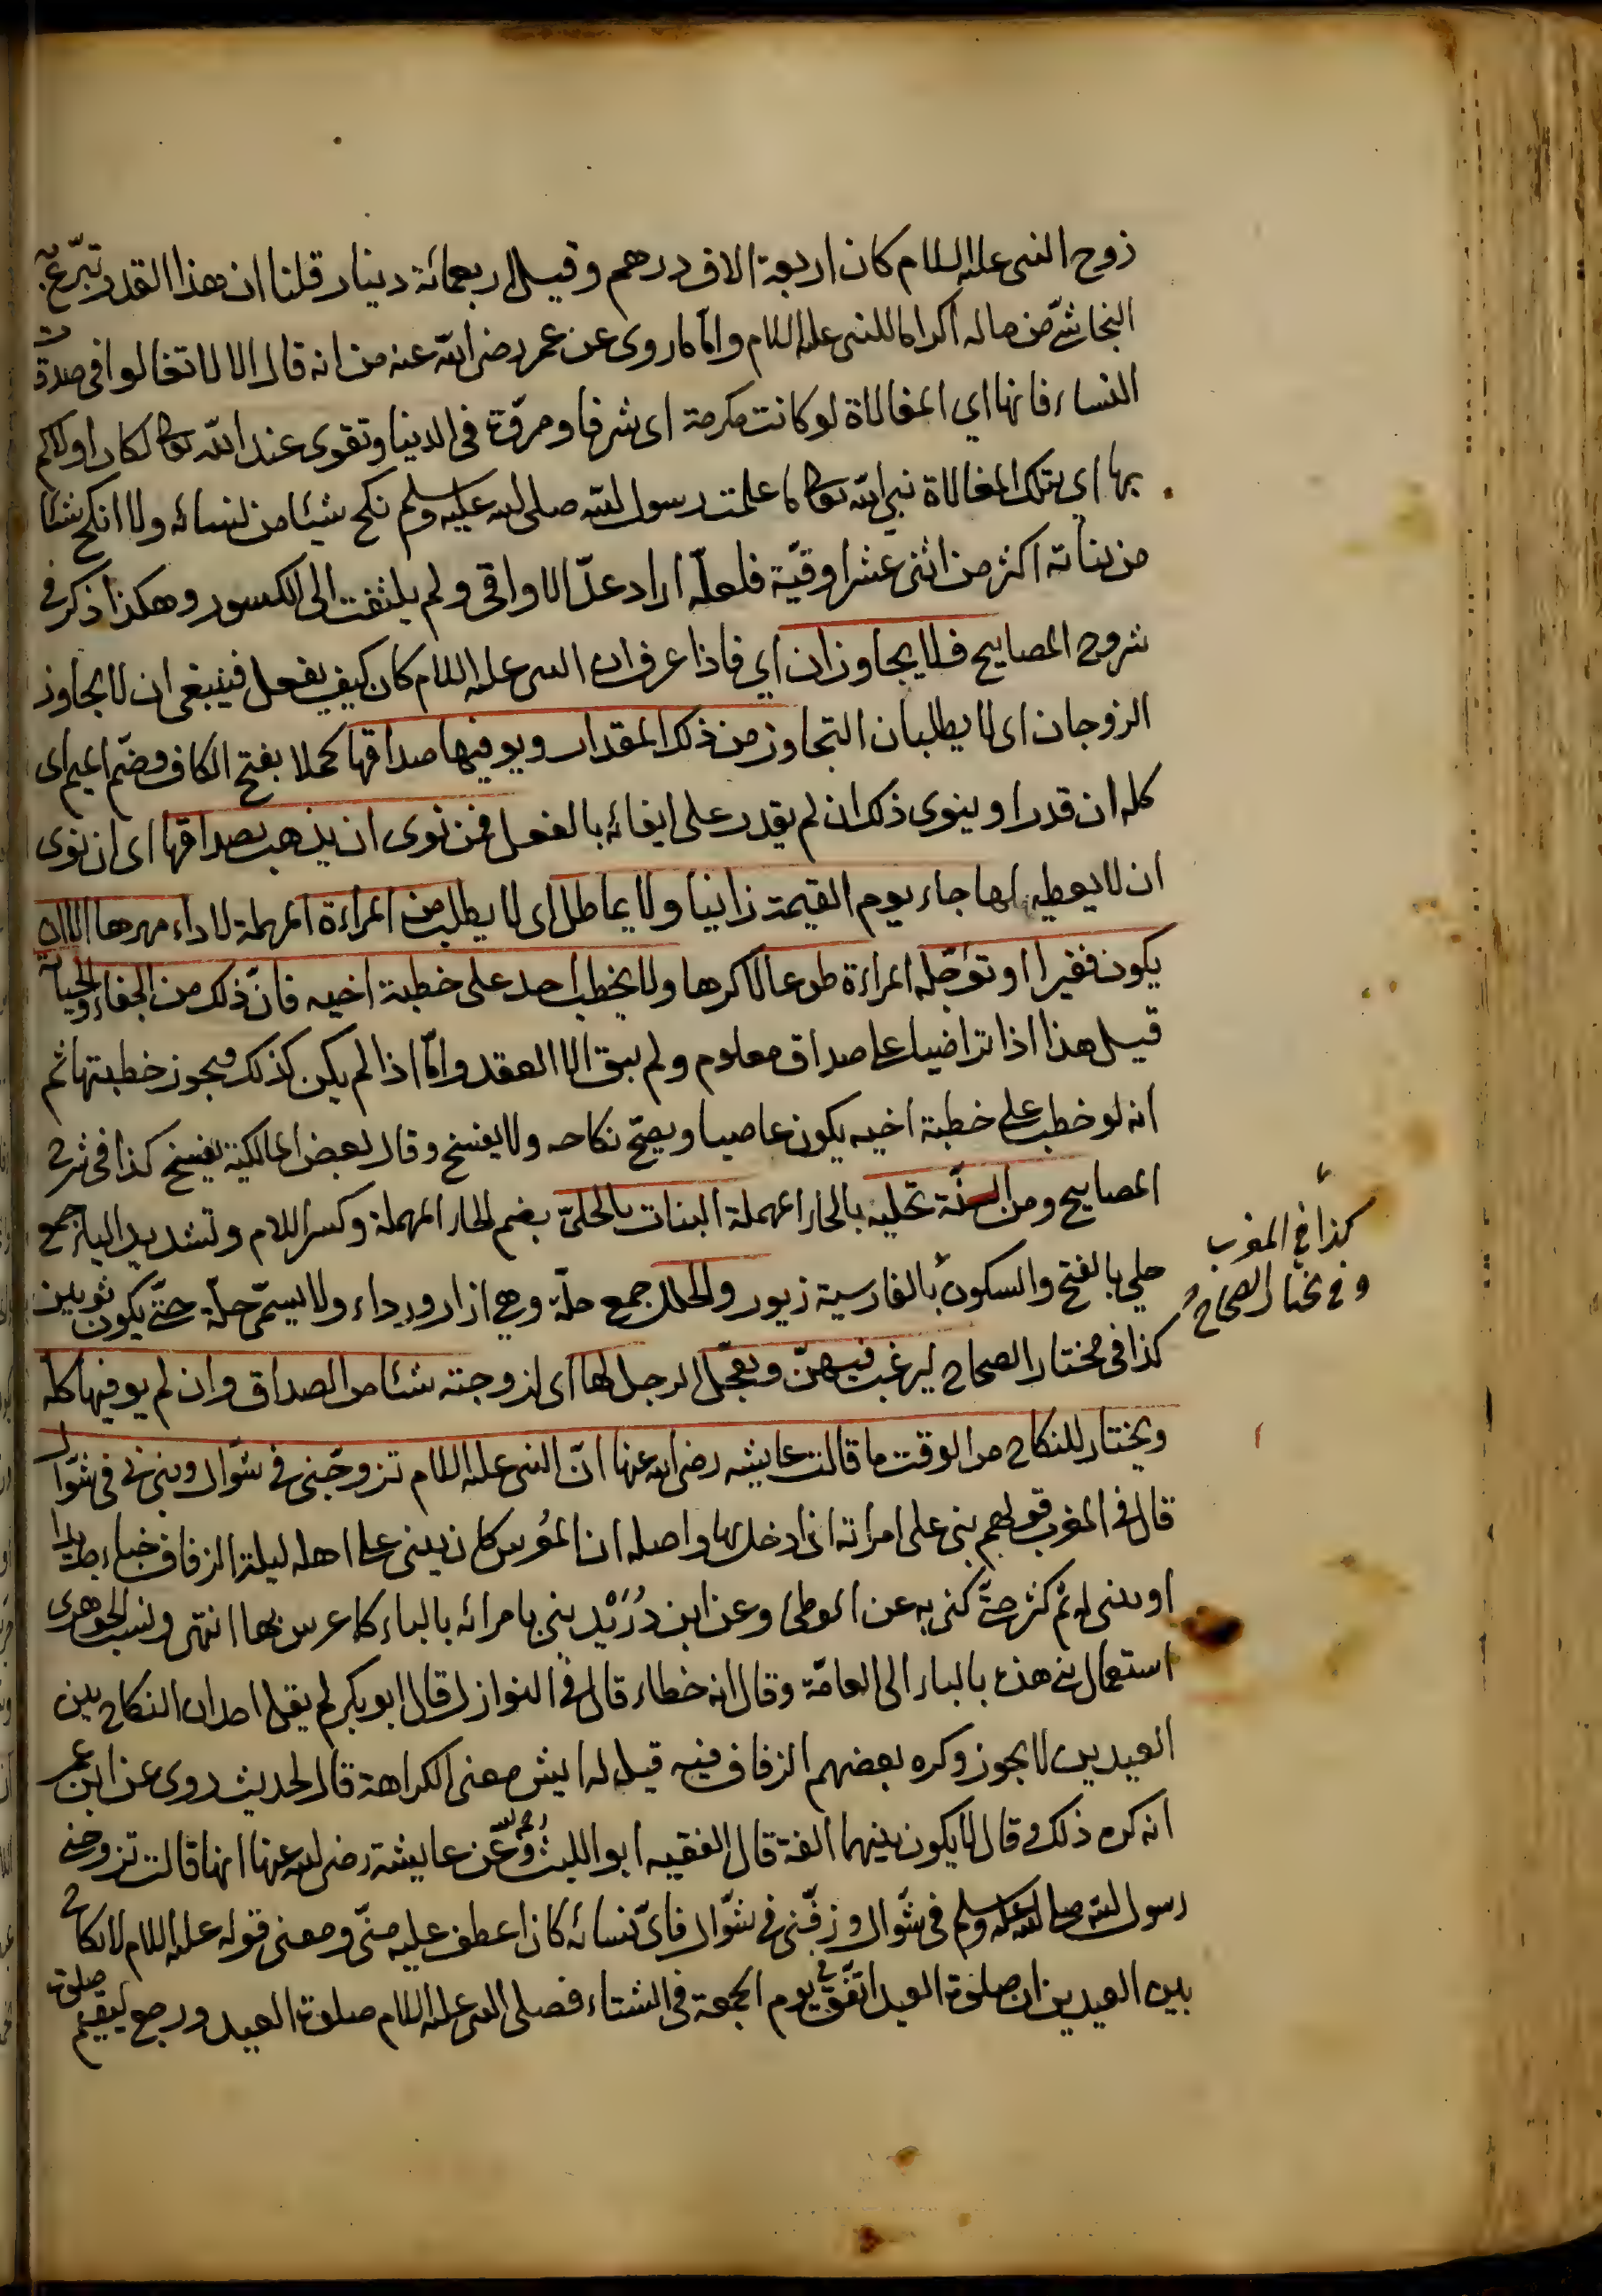 زوج النبى عليه السلام كان اربعة الاف درهم وقيل اربعمائة دينار قلنا ان هذا القدر تبرّع به
النجاشىّ من ماله اكراما للنبى عليه السلام وامّا ما روى عن عمر رضى الله عنه من انه قال الا لا تغالوا فى صدقة
النساء فانها اي المغالاة لو كانت مكرمة اى شرفا ومروّة فى الدنيا وتقوى عند الله تعالى لكان اولاكم
بها اي بتلك المغالاة نبى الله تعالى ما علمت رسول الله صلى الله عليه وسلم نكح شيئا من نسائه ولا انكح شيئا
من بناته اكثر من اثنى عشر اوقيّة فلعلّه اراد عدّ الاواقى ولم يلتفت الى الكسور وهكذا ذكر فى
شروح المصابيح فلا يجاوزان اي فاذا عرف ان النبى عليه السلام كان كيف يفعل فينبغى ان لا يجاوز
الزوجان اى لا يطلبان التجاوز من ذلك المقدار ويوفيها صداقها كملا بفتح الكاف وضم الميم اى
كله ان قدر او ينوى ذلك ان لم يقدر على ايفائه بالفعل فمن نوى ان يذهب بصداقها اى ان نوى
ان لا يعطيه لها جاء يوم القيمة زانيا ولا يماطل اى لا يطلب من المراءة المهلة لاداء مهرها الا ان
يكون فقيرا او تؤجّله المراءة طوعا لا كرها ولا يخطب احد على خطبة اخيه فانّ ذلك من الجفاء والخيانة
قيل هذا اذا تراضيا على صداق معلوم ولم يبق الا العقد وامّا اذا لم يكن كذلك فيجوز خطبتها ثم
انه لو خطب على خطبة اخيه يكون عاصيا ويصحّ نكاحه ولا يفسخ وقال بعض المالكية يفسخ كذا فى شرح
المصابيح ومن السنّة تحلية بالحاء المهملة البنات بالحلىّ بضم الحاء المهملة وكسر اللام وتشديد الياء جمع
حلي بالفتح والسكون بالفارسية زيور والحلل جمع حلّة وهي ازار ورداء ولا يسمّى حلّة حتّى يكون ثوبين
كذا فى المغرب
وفى مختار الصحاح
كذا فى مختار الصحاح ليرغب فيهنّ ويعجّل الرجل لها اى لزوجته شئا من الصداق وان لم يوفيها كله
ويختار للنكاح من الوقت ما قالت عايشه رضى الله عنها انّ النبى عليه السلام تزوجّنى فى شوّال وبنى بى فى شوّال
قال فى المغرب قولهم بنى على امراته اذا دخل بها واصله ان المعرس كان يبنى على اهله ليلة الزفاف خباء جديدا
او يبنى له ثم كثر حتّى كنى به عن الوطئ وعن ابن دُرَيْد بنى بامرائه بالباء كاعرس بها انتهى ونسب الجوهرى
استعمال بنى هذه بالباء الى العامّة وقال انه خطاء قال فى النوازل قال ابو بكر لم يقل احد ان النكاح بين
العيدين لا يجوز وكره بعضهم الزفاف فيه قيل له ايش معنى الكراهة قال لحديث روى عن ابن عمر
انه كره ذلك وقال لا يكون بينهما الفة قال الفقيه ابو الليث رحمه الله وعن عايشة رضى الله عنها انها قالت تزوجنى
رسول الله صلى الله عليه وسلم فى شوّال وزفّنى فى شوّال فاىّ نسائه كان اعطف عليه منّى ومعنى قوله عليه السلام لا نكاح
بين العيدين ان صلوة العيد اتّفق فى يوم الجمعة فى الشتاء فصلى النبى عليه السلام صلوة العيد ورجع ليقيم صلوة